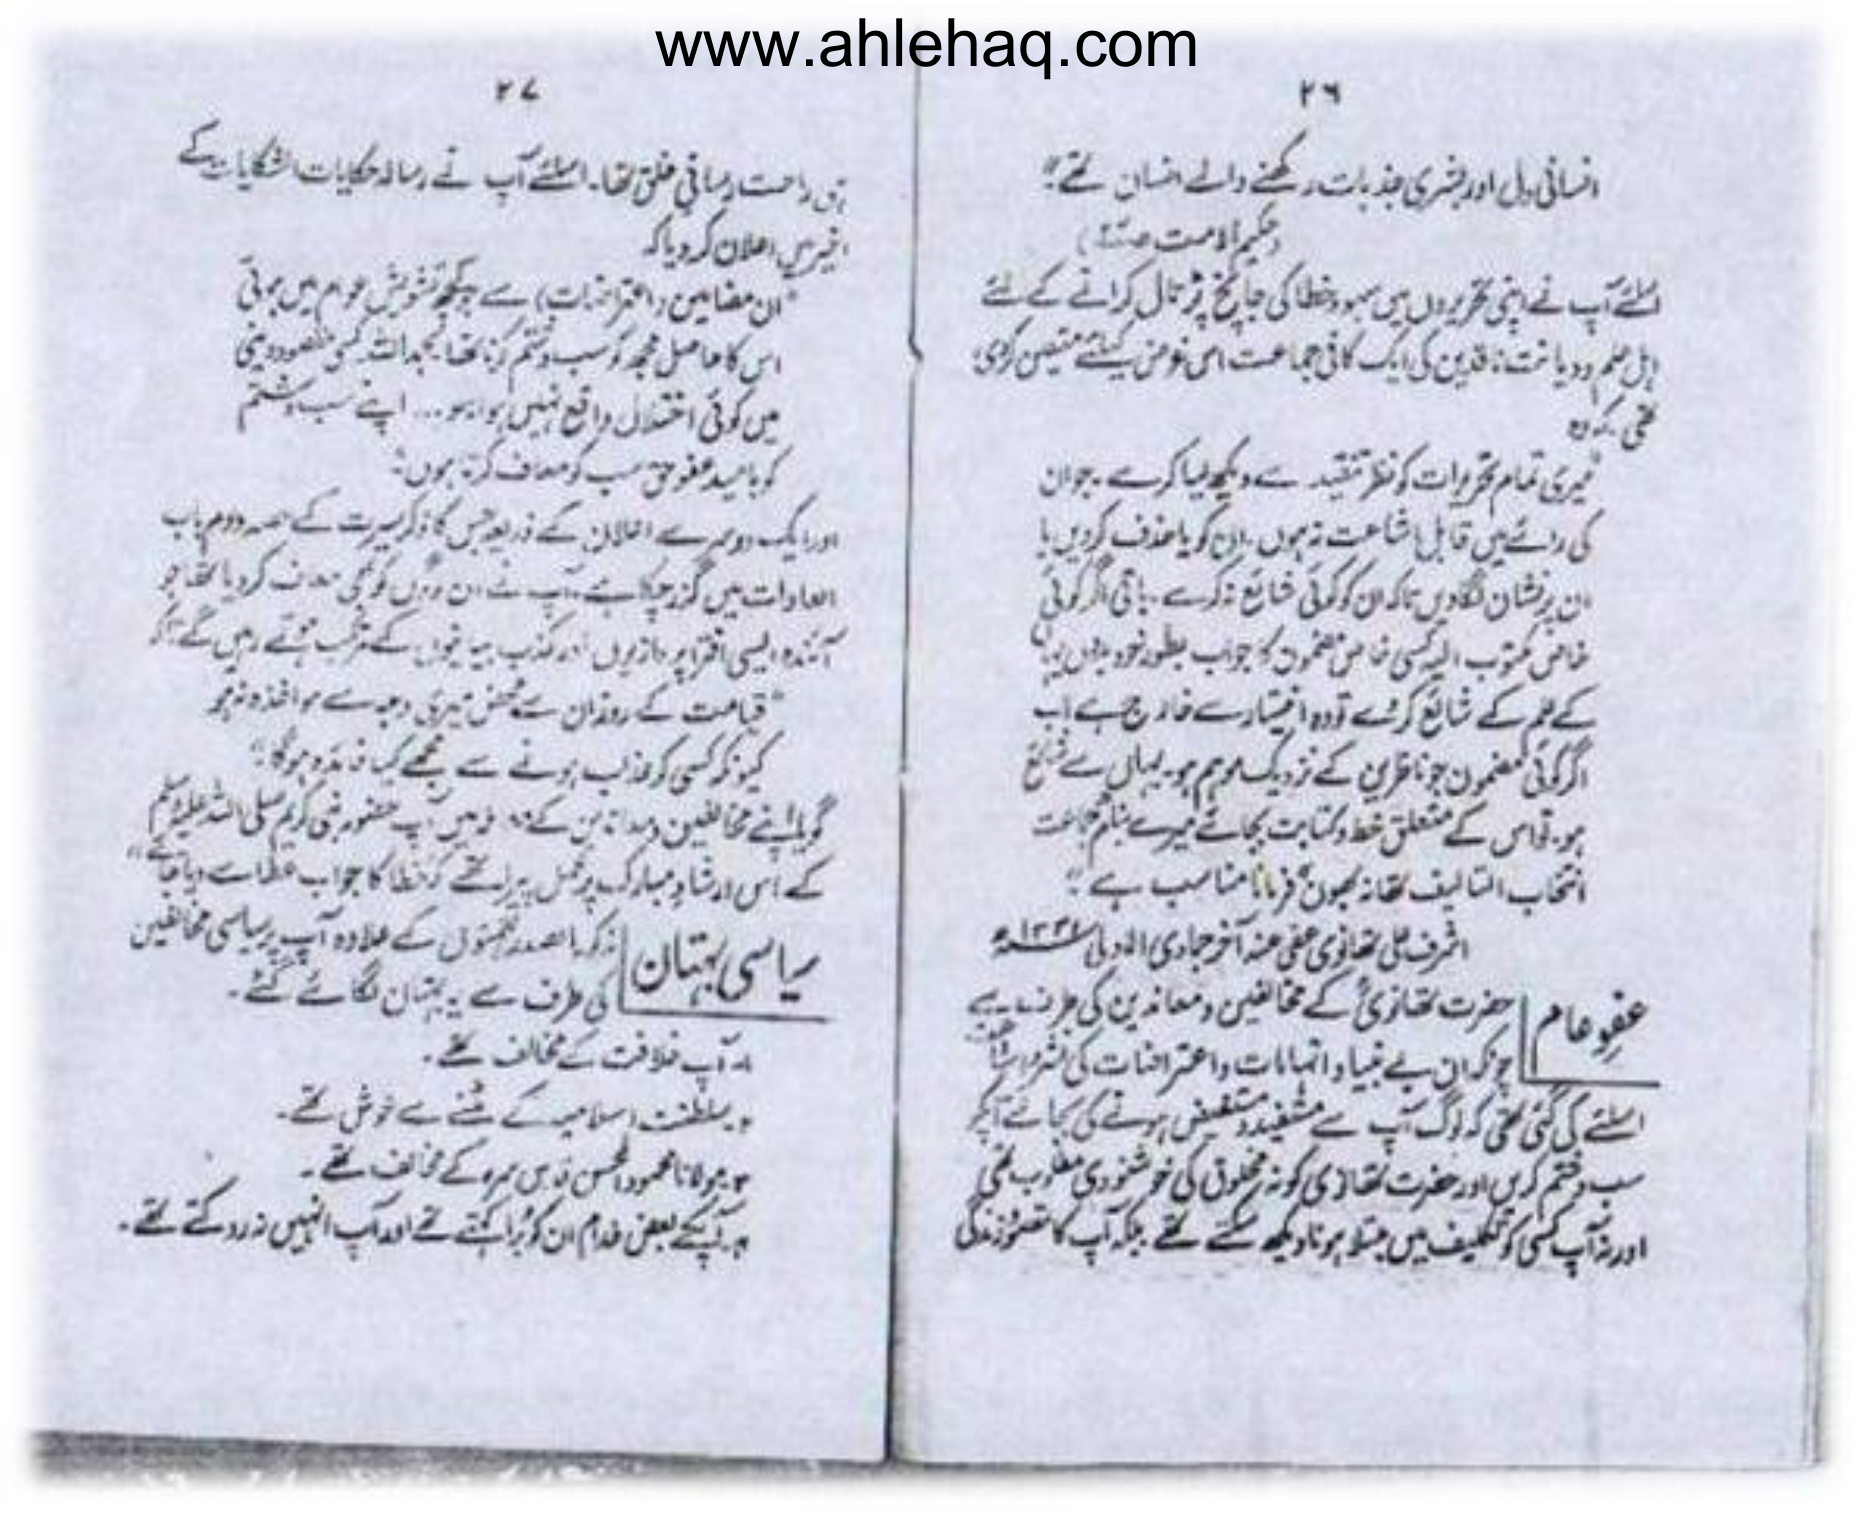 www.ahlehaq.com
۲۶
انسانی دل اور بشری جذبات رکھنے والے انسان تھے"
(حکیم الامت
اسلئے آپ نے اپنی تحریروں میں سہو و خطا کی جانچ پڑتال کرانے کے لئے
اہل علم و دیانت ناقدین کی ایک کافی جماعت اسی غرض کیلئے متعین کردی
تھی کہ وہ
"میری تمام تحریرات کو نظر تنقید سے دیکھ لیا کرے ۔ جو ان
کی رائے میں قابل اشاعت نہ ہوں ان کو یا حذف کردیں یا
ان پر نشان لگادیں تاکہ ان کو کوئی شائع نہ کرے ۔ باقی اگر کوئی
خاص مکتوب الیہ کسی خاص مضمون کا جواب بطور خود بدوں
کے علم کے شائع کردے تو وہ اختیار سے خارج ہے اب
اگر کوئی مضمون جو ناظرین کے نزدیک موہم ہو ۔ یہاں سے شائع
ہو ۔ تو اس کے متعلق خط و کتابت بجائے میرے بنام جماعت
انتخاب التالیف تھانہ بھون فرمانا مناسب ہے"
اشرف علی تھانوی عفی عنہ آخر جمادی الاولی
عفو عام
حضرت تھانویؒ کے مخالفین و معاندین کی طرف سے
چونکہ ان بے بنیاد اتہامات و اعتراضات کی نشر و اشاعت
اسلئے کی گئی تھی کہ لوگ آپ سے مستفید و مستفیض ہونے کی بجائے آپکو
سب و شتم کریں اور حضرت تھانوی کو نہ مخلوق کی خوشنودی مطلوب تھی
اور نہ آپ کسی کو تکلیف میں مبتلا ہونا دیکھ سکتے تھے بلکہ آپ کا مقصود زندگی
۲۷
ہی راحت رسانی خلق تھا ۔ اسلئے آپ نے رسالہ حکایات الشکایات کے
اخیر میں اعلان کردیا کہ
"ان مضامین (اعتراضات) سے جو کچھ تشویش عوام میں ہوئی
اس کا حاصل مجھ کو سب و شتم کرنا تھا بحمداللہ کسی مقصود دینی
میں کوئی اختلال واقع نہیں ہوا ۔ سو ... اپنے سب و شتم
کو بامید عفو حق سب کو معاف کرتا ہوں"
اور ایک دوسرے اعلان کے ذریعہ جس کا ذکر سیرت کے حصہ دوم باب
العادات میں گزر چکا ہے ۔ آپ نے ان لوگوں کو بھی معاف کردیا تھا جو
آئندہ ایسی افترا پردازیوں اور کذب بیانیوں کے مرتکب ہوتے رہیں گے تاکہ
"قیامت کے روز ان سے محض میری وجہ سے مواخذہ نہ ہو
کیونکہ کسی کو عذاب ہونے سے مجھے کیا فائدہ ہوگا"
گویا اپنے مخالفین و معاندین کے میں آپ حضور نبی کریم صلی اللہ علیہ وسلم
کے اس ارشاد مبارک پر عمل پیرا تھے کہ خطا کا جواب عطا سے دیا جائے"
سیاسی بہتان
مذکورہ الصدر تہمتوں کے علاوہ آپ پر سیاسی مخالفین
کی طرف سے یہ بہتان لگائے گئے ۔
۱۔ آپ خلافت کے مخالف تھے ۔
۲۔ سلطنت اسلامیہ کے مٹنے سے خوش تھے ۔
۳۔ مولانا محمود الحسن قدس سرہ کے مخالف تھے ۔
۴۔ آپکے بعض خدام ان کو برا کہتے تھے اور آپ انہیں نہ روکتے تھے ۔